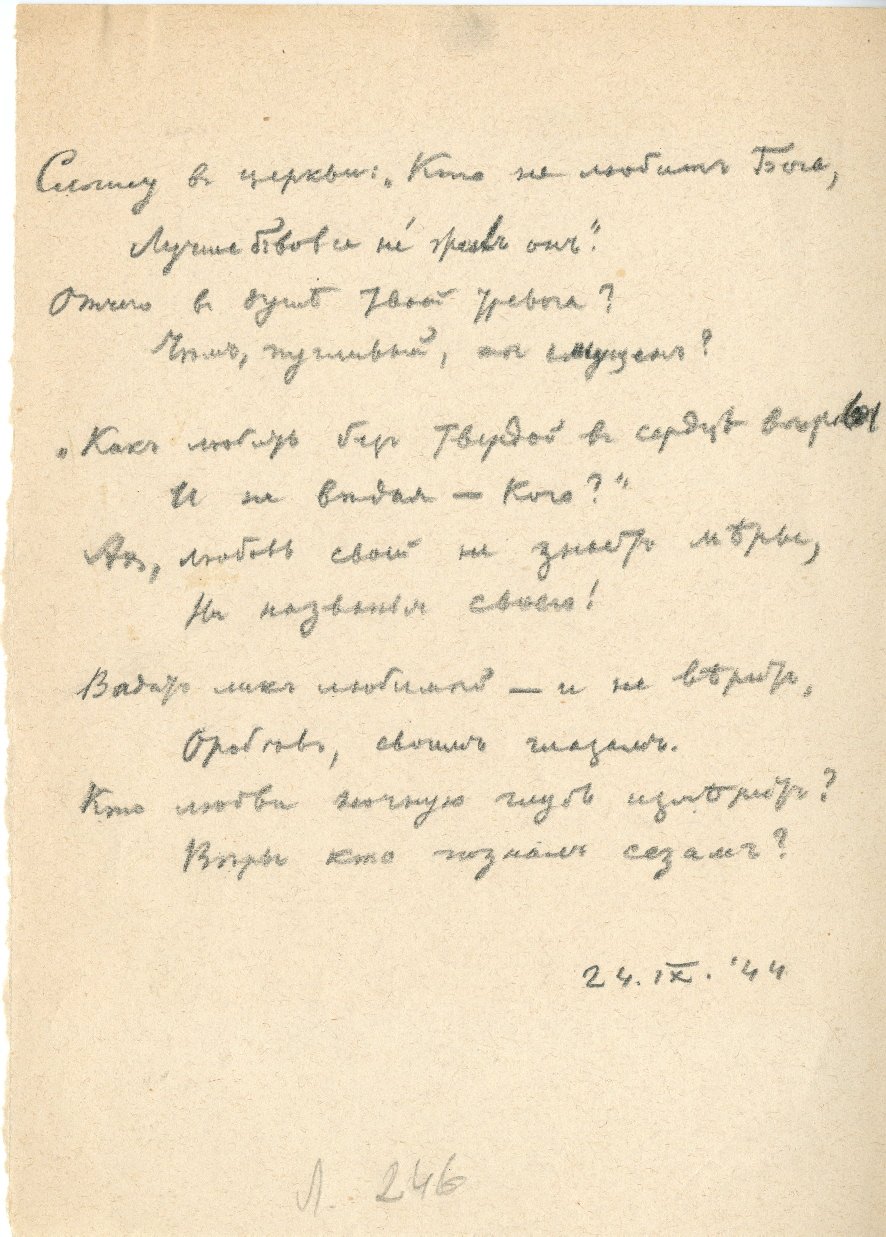 Слышу в церкви: „Кто не любитъ Бога,
Лучше б вовсе не́ жилъ онъ".
Отчего в душѣ твоей тревога?
Чѣмъ, пугливый, ты смущенъ?
„Какъ любить безъ твердой в сердцѣ вѣры
И не видя — Кого?"
Ах, любовь своей не знаетъ мѣры,
Ни названья своего!
Видитъ ликъ любимый — и не вѣритъ,
Оробѣвъ, своимъ глазамъ.
Кто любви ночную глубь измѣритъ?
Вѣры кто позналъ сезамъ?
24.IX.'44
Л. 246